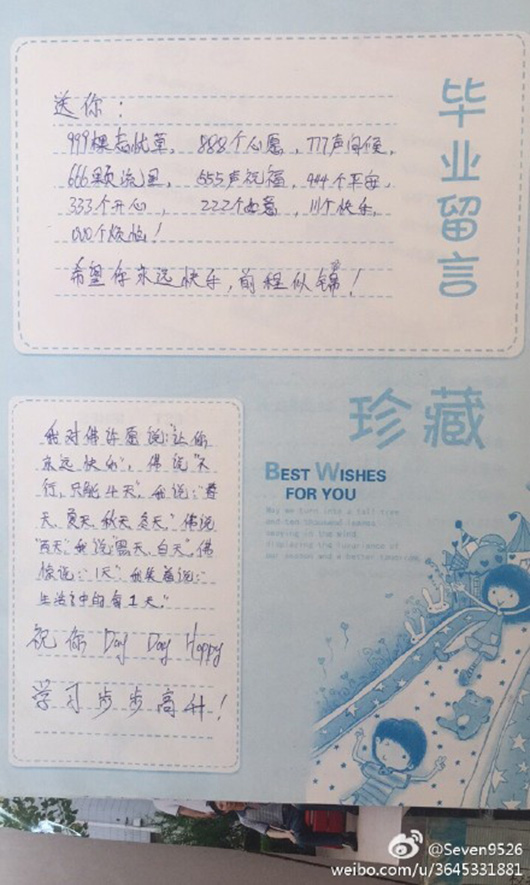 毕业留言
送你：
999棵忘忧草，888个心愿，777声问候，
666颗流星，555声祝福，444个平安，
333个开心，222个如意，111个快乐，
000个烦恼！
希望你永远快乐，前程似锦！
珍藏
BEST WISHES
FOR YOU
May we turn into a tall tree
and ten thousand leaves
swaying in the wind
displaying the luxuriance of
our season and a better tomorrow
我对佛许愿说：“让你
永远快乐”，佛说“不
行，只能4天”，我说：“春
天、夏天、秋天、冬天。”佛说
“两天”，我说“黑天、白天”，佛
惊说：“1天”，我笑着说：“
生活中的每1天。”
祝你 Day Day Happy
学习步步高升！
@Seven9526
weibo.com/u/3645331881